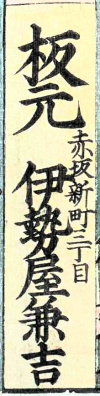 板元
赤坂新町三丁目
伊勢屋兼吉